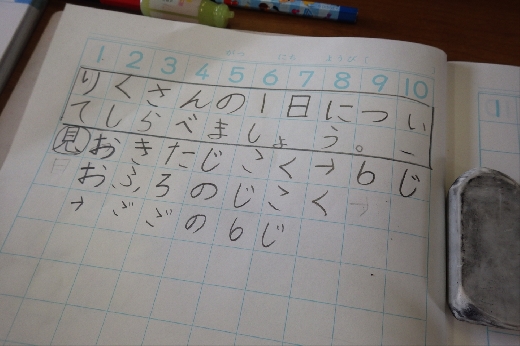 1 2 3 4 5 6 7 8 9 10
がつ にち ようび
りくさんの1日につい
てしらべましょう。
見おきたじこく→6じ
おふろのじこく
→ごごの6じ
1